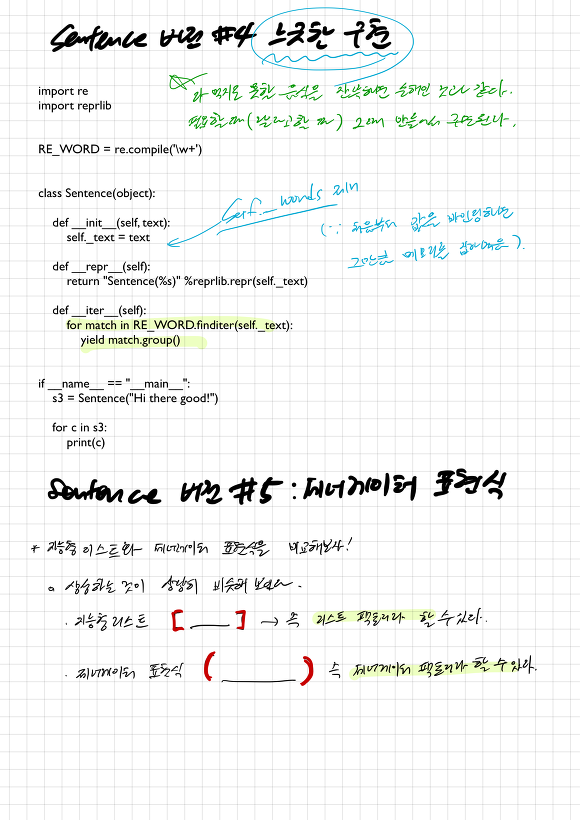 Sentence 버전 #4 느긋한 구현
다 먹지도 못할 음식을 잔뜩하면 손해인 것과 같다.
필요할 때 ( 달라고 할 때 ) 그때 만들어서 주면된다.
import re
import reprlib
RE_WORD = re.compile('\w+')
class Sentence(object):
self._words 제거
def __init__(self, text):
self._text = text
(∵ 처음부터 값을 바인딩하면
그만큼 메모리를 잡아먹음 ).
def __repr__(self):
return "Sentence(%s)" %reprlib.repr(self._text)
def __iter__(self):
for match in RE_WORD.finditer(self._text):
yield match.group()
if __name__ == "__main__":
s3 = Sentence("Hi there good!")
for c in s3:
print(c)
Sentence 버전 #5 : 제너레이터 표현식
* 지능형 리스트와 제너레이터 표현식을 비교해보자!
o 생성하는 것이 상당히 비슷해 보인다.
· 지능형 리스트 [ ____ ] → 즉 리스트 팩토리라 할 수 있다.
· 제너레이터 표현식 ( ________ ) 즉 제너레이터 팩토리라 할 수 있다.